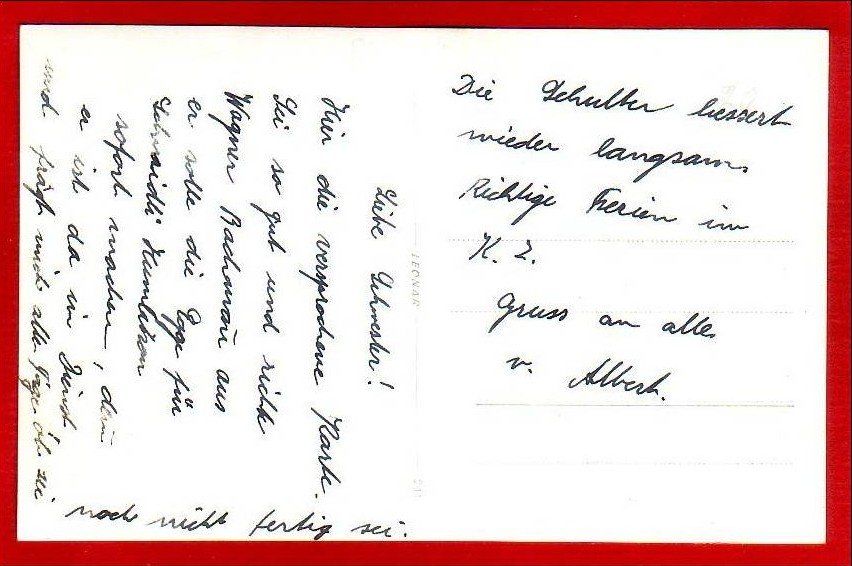 Liebe Schwester!
Hier die versprochene Karte.
Sei so gut und richte
Wagner Bachmann aus
er solle die Egge für
Schmidli Humlikon
sofort machen, denn
er ist da im Dienst
und frägt mich alle Tage ob sie
noch nicht fertig sei.
Die Schulter bessert
wieder langsam.
Richtige Ferien im
K. Z.
Gruss an alle
v. Albert.
LEONAR